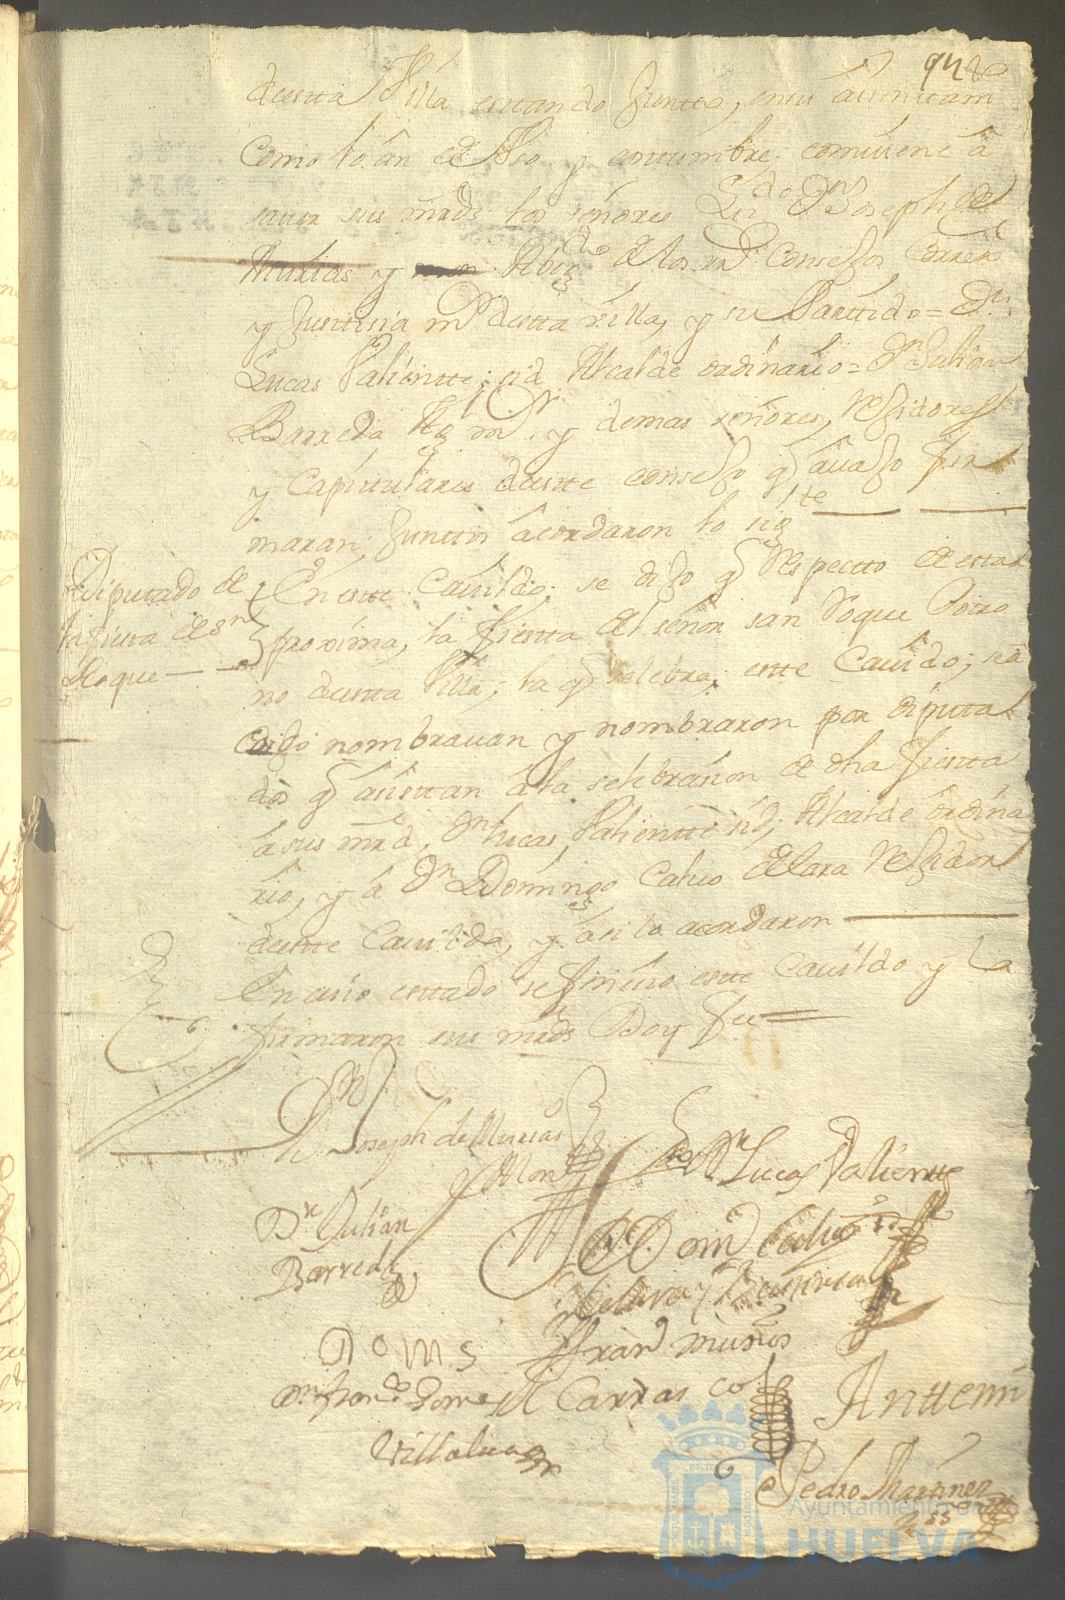 942
desta Villa estando juntos, en su aiuntam
como lo an de Uso y costumbre combiene â
sauer sus mrds los señores Lizdo Dn Joseph de
Murias y Abogdo de los rs Consejos Correxr
y Justisia mr desta villa, y su Parttido = Dn
Lucas Valientte Alcalde ordinario = Dn Julian
Barreda Alg mr. y demas señores, Rejidores
y Capitulares deste consejo q âuajo fir
maran, Junttos âcordaron lo sigte
Diputado de
la fiesta de Sn
Roque
En este Cauildo, se dijo q Respectto de estar
proxima, la fiesta del señor san Roque Patro
no desta Villa; la q selebra este Cauildo;
nombrauan y nombraron por diputa
dos q âsistan â la selebrasion de dha fiesta
â sus mrd, Dn Lucas Valientte Alcalde ôrdina
rio, y â Dn Domingo Caluo de Lara Rejidor
deste Cauildo, y âsi lo acordaron
En este estado se finêsio este Cauildo y La
firmaron sus mrds Doy fee
Ldo Dn Joseph de Murias
y Mon
Dn Lucas Valientte
Dn Julian
Barreda
Dn Domo Caluo
de Lara y
Doms
Fran muños
Dn Franco Gome
Carrasco
Villalua
Antte mi
Pedro Martinez
Ayuntamiento de
HUELVA